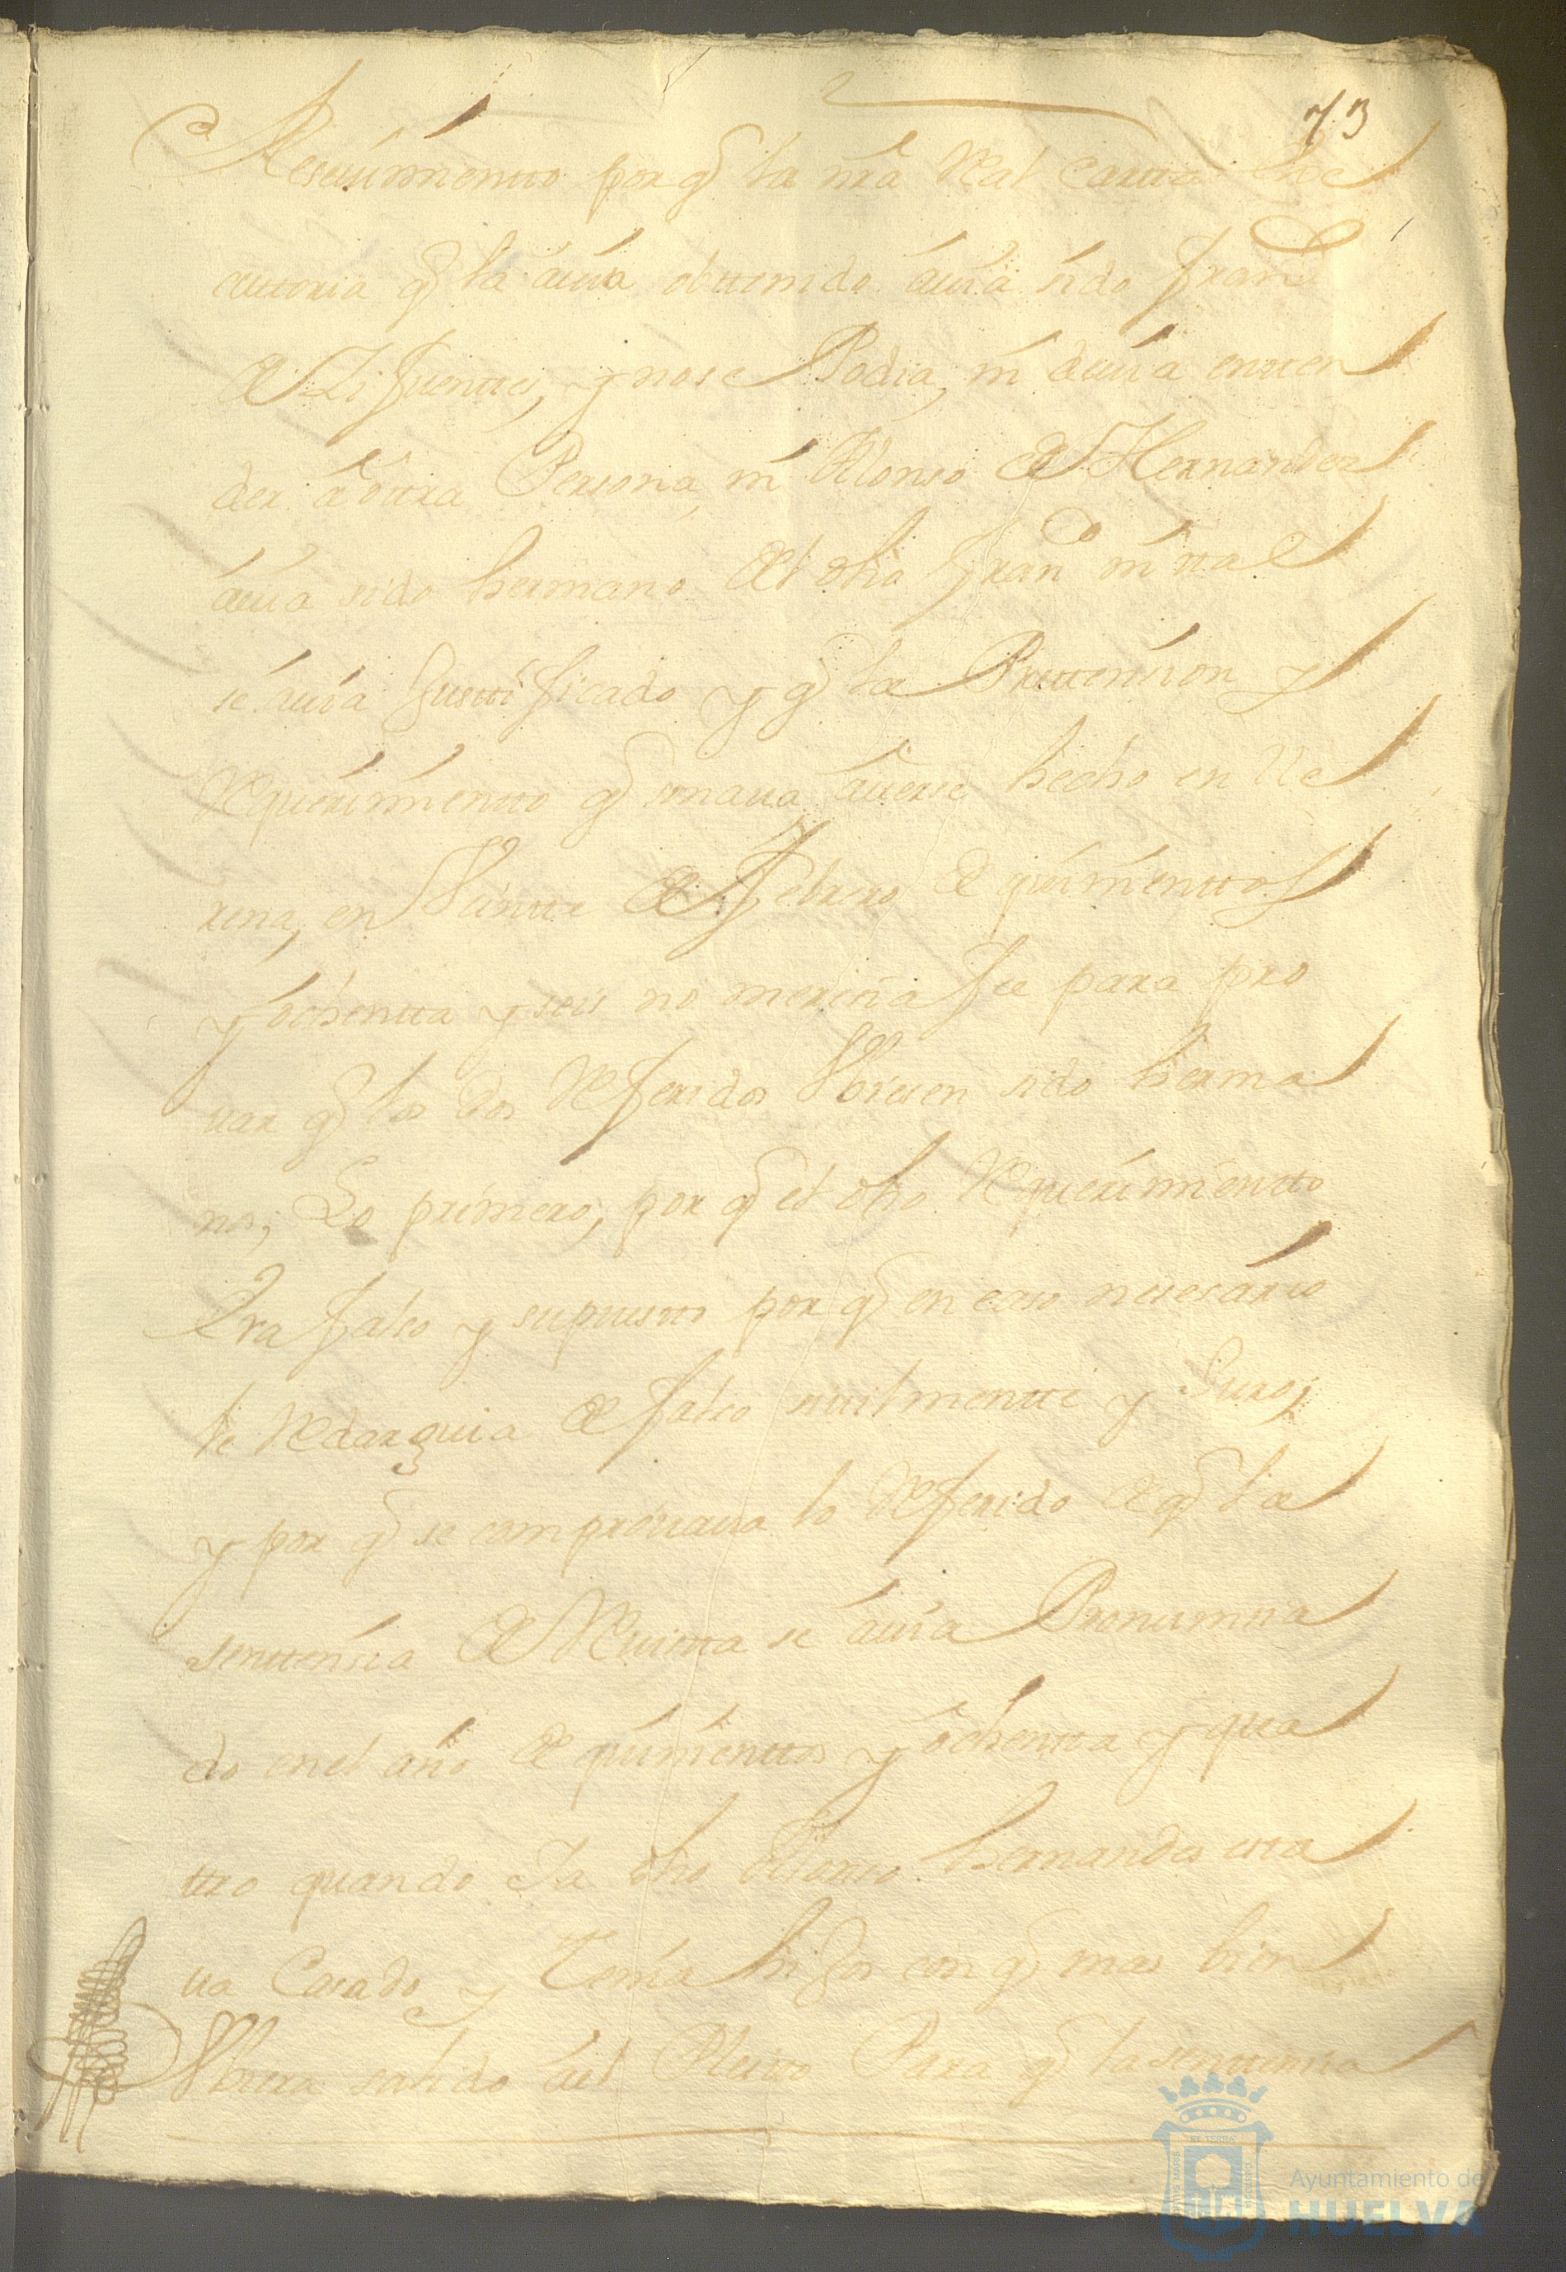 73
Reseuimientto por q̃ la nrã Real Cartta Exe
cuttoria q̃ la auia obttenido auia sido fran.co
de Zifuenttes, y nose Podia, ni deuia entten
der â ôttra Persona, ni Alonso de Hernandez
auia sido hermano del dho fran.co ni ttal
se auia Justtificado y q̃ la Prettension y
Requerimientto q̃ sonaua auerse hecho en Lle
rena, en Veintte de Febrero de quinienttos
y ôchentta y seis no merecia fee para pro
uar q̃ los dos Referidos Vbiesen sido herma
nos, Lo primero, por q̃ el dho Requerimientto
Era falso y supuestto por q̃ en caso nesesario
le Redarguia de falso siuilmentte y Juro;
y por q̃ se comprouaua lo Referido de q̃ la
senttensia de Reuistta se auia Pronunsia
do en el año de quinienttos y ôchentta y qua
ttro quando Ya dho Alonso hernandes estta
ua Casado, y Tenia hijos con q̃ mas bien
Vbiera salido âel Pleitto Para q̃ la senttensia
Ayuntamiento de
HUELVA